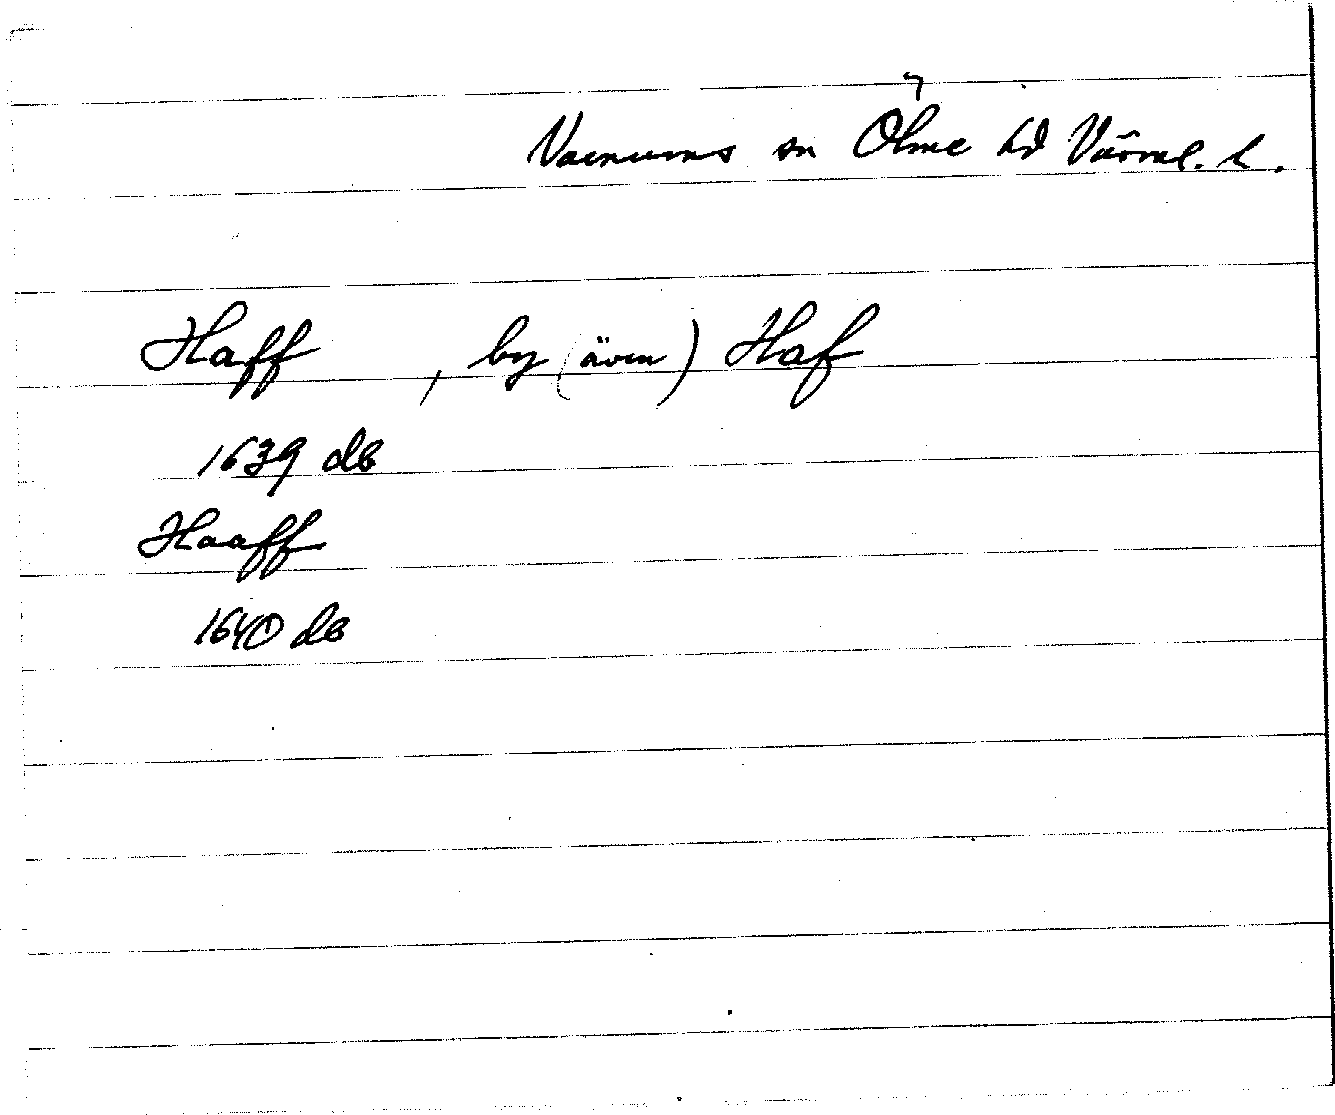 Varnums sn Ölme hd Värml. l.
Haff , by (även) Haf
1639 db
Haaff
1640 db